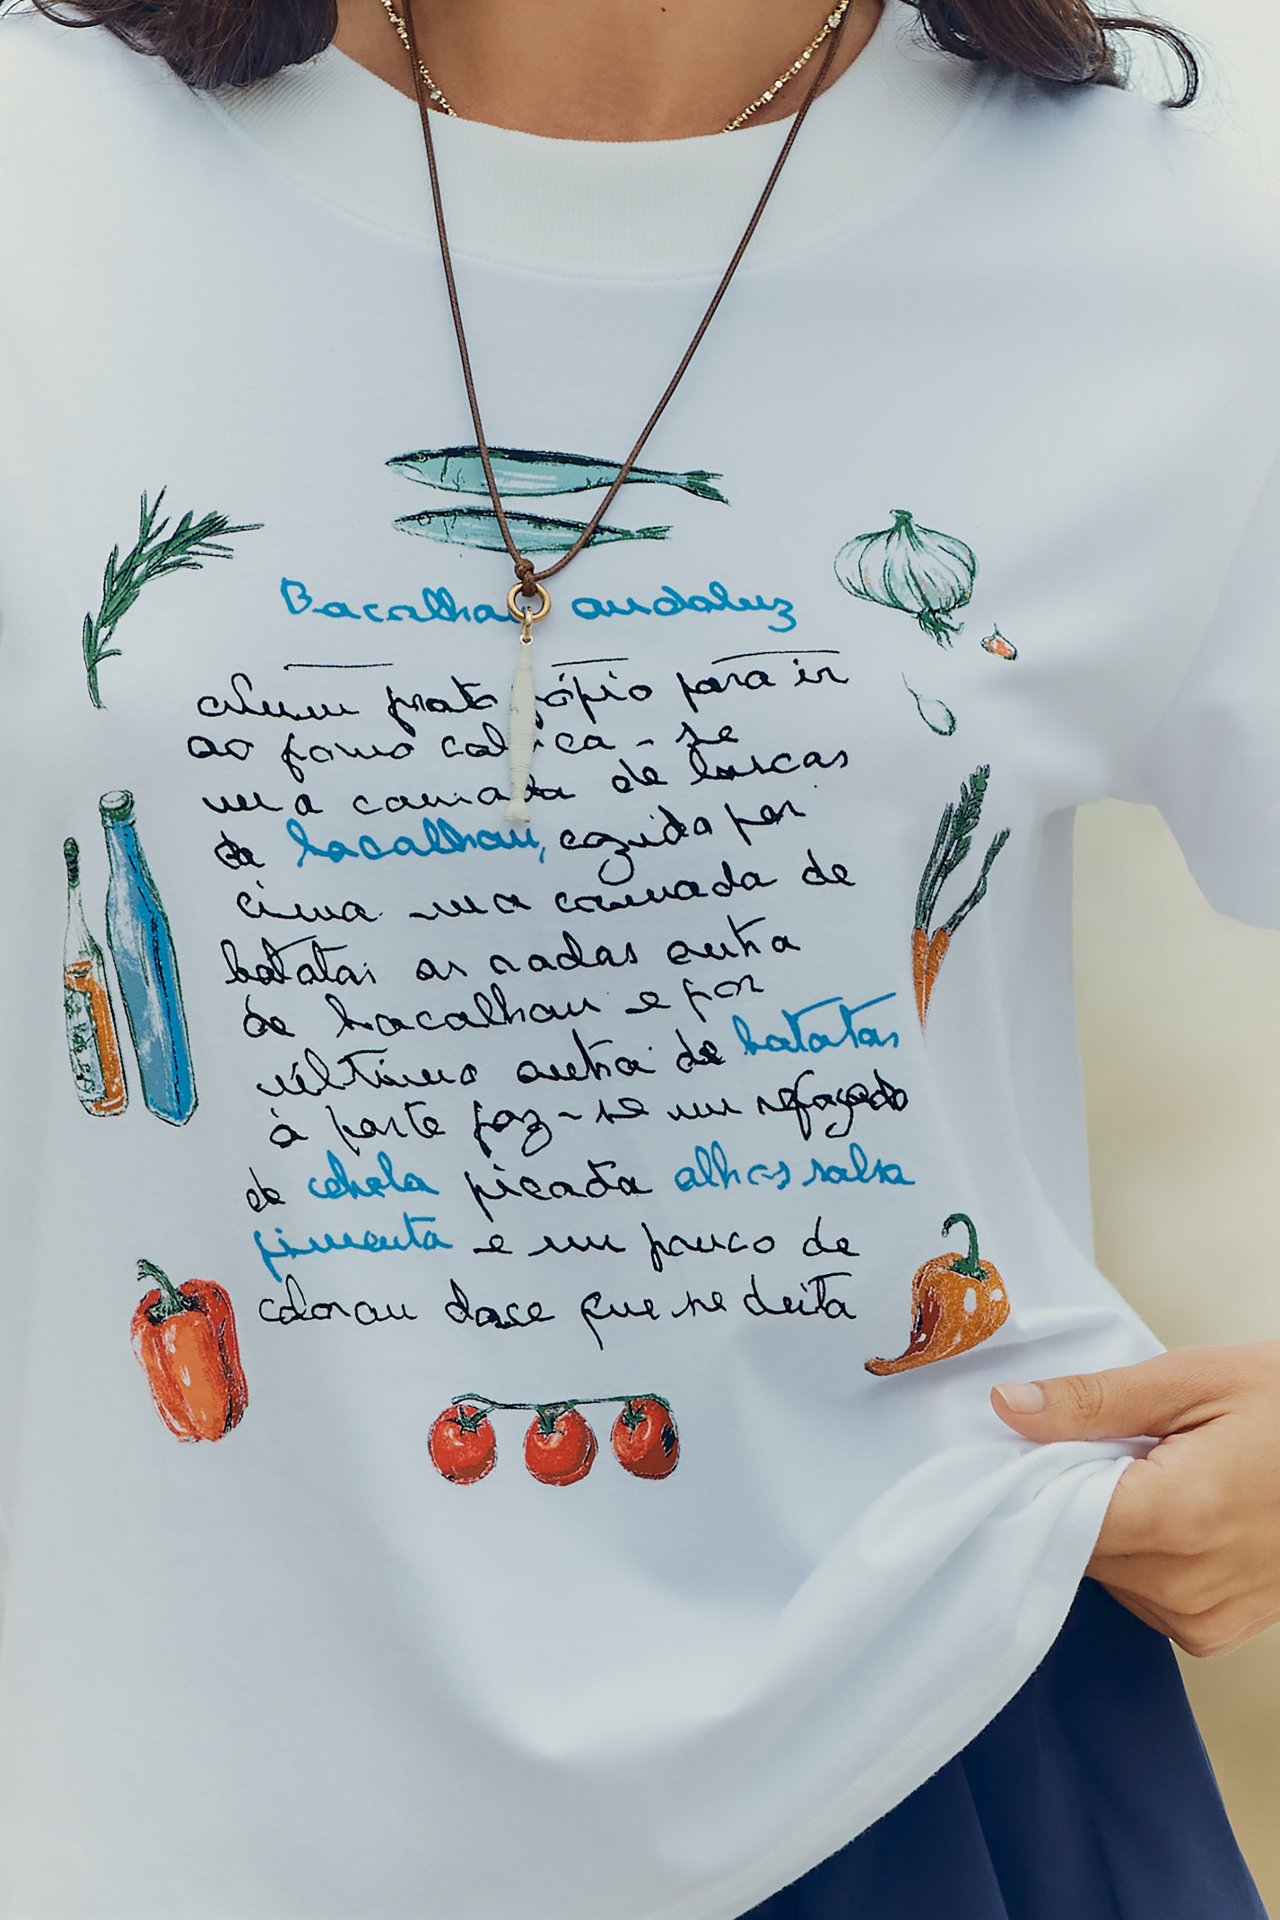 Bacalhau andaluz
num prato próprio para ir
ao forno coloca-se
uma camada de lascas
de bacalhau, cozido por
cima uma camada de
batatas as rodas outra
de bacalhau e por
último outra de batatas
à parte faz-se um refogado
de cebola picada alhos salsa
pimenta e um pouco de
colorau doce que se deita